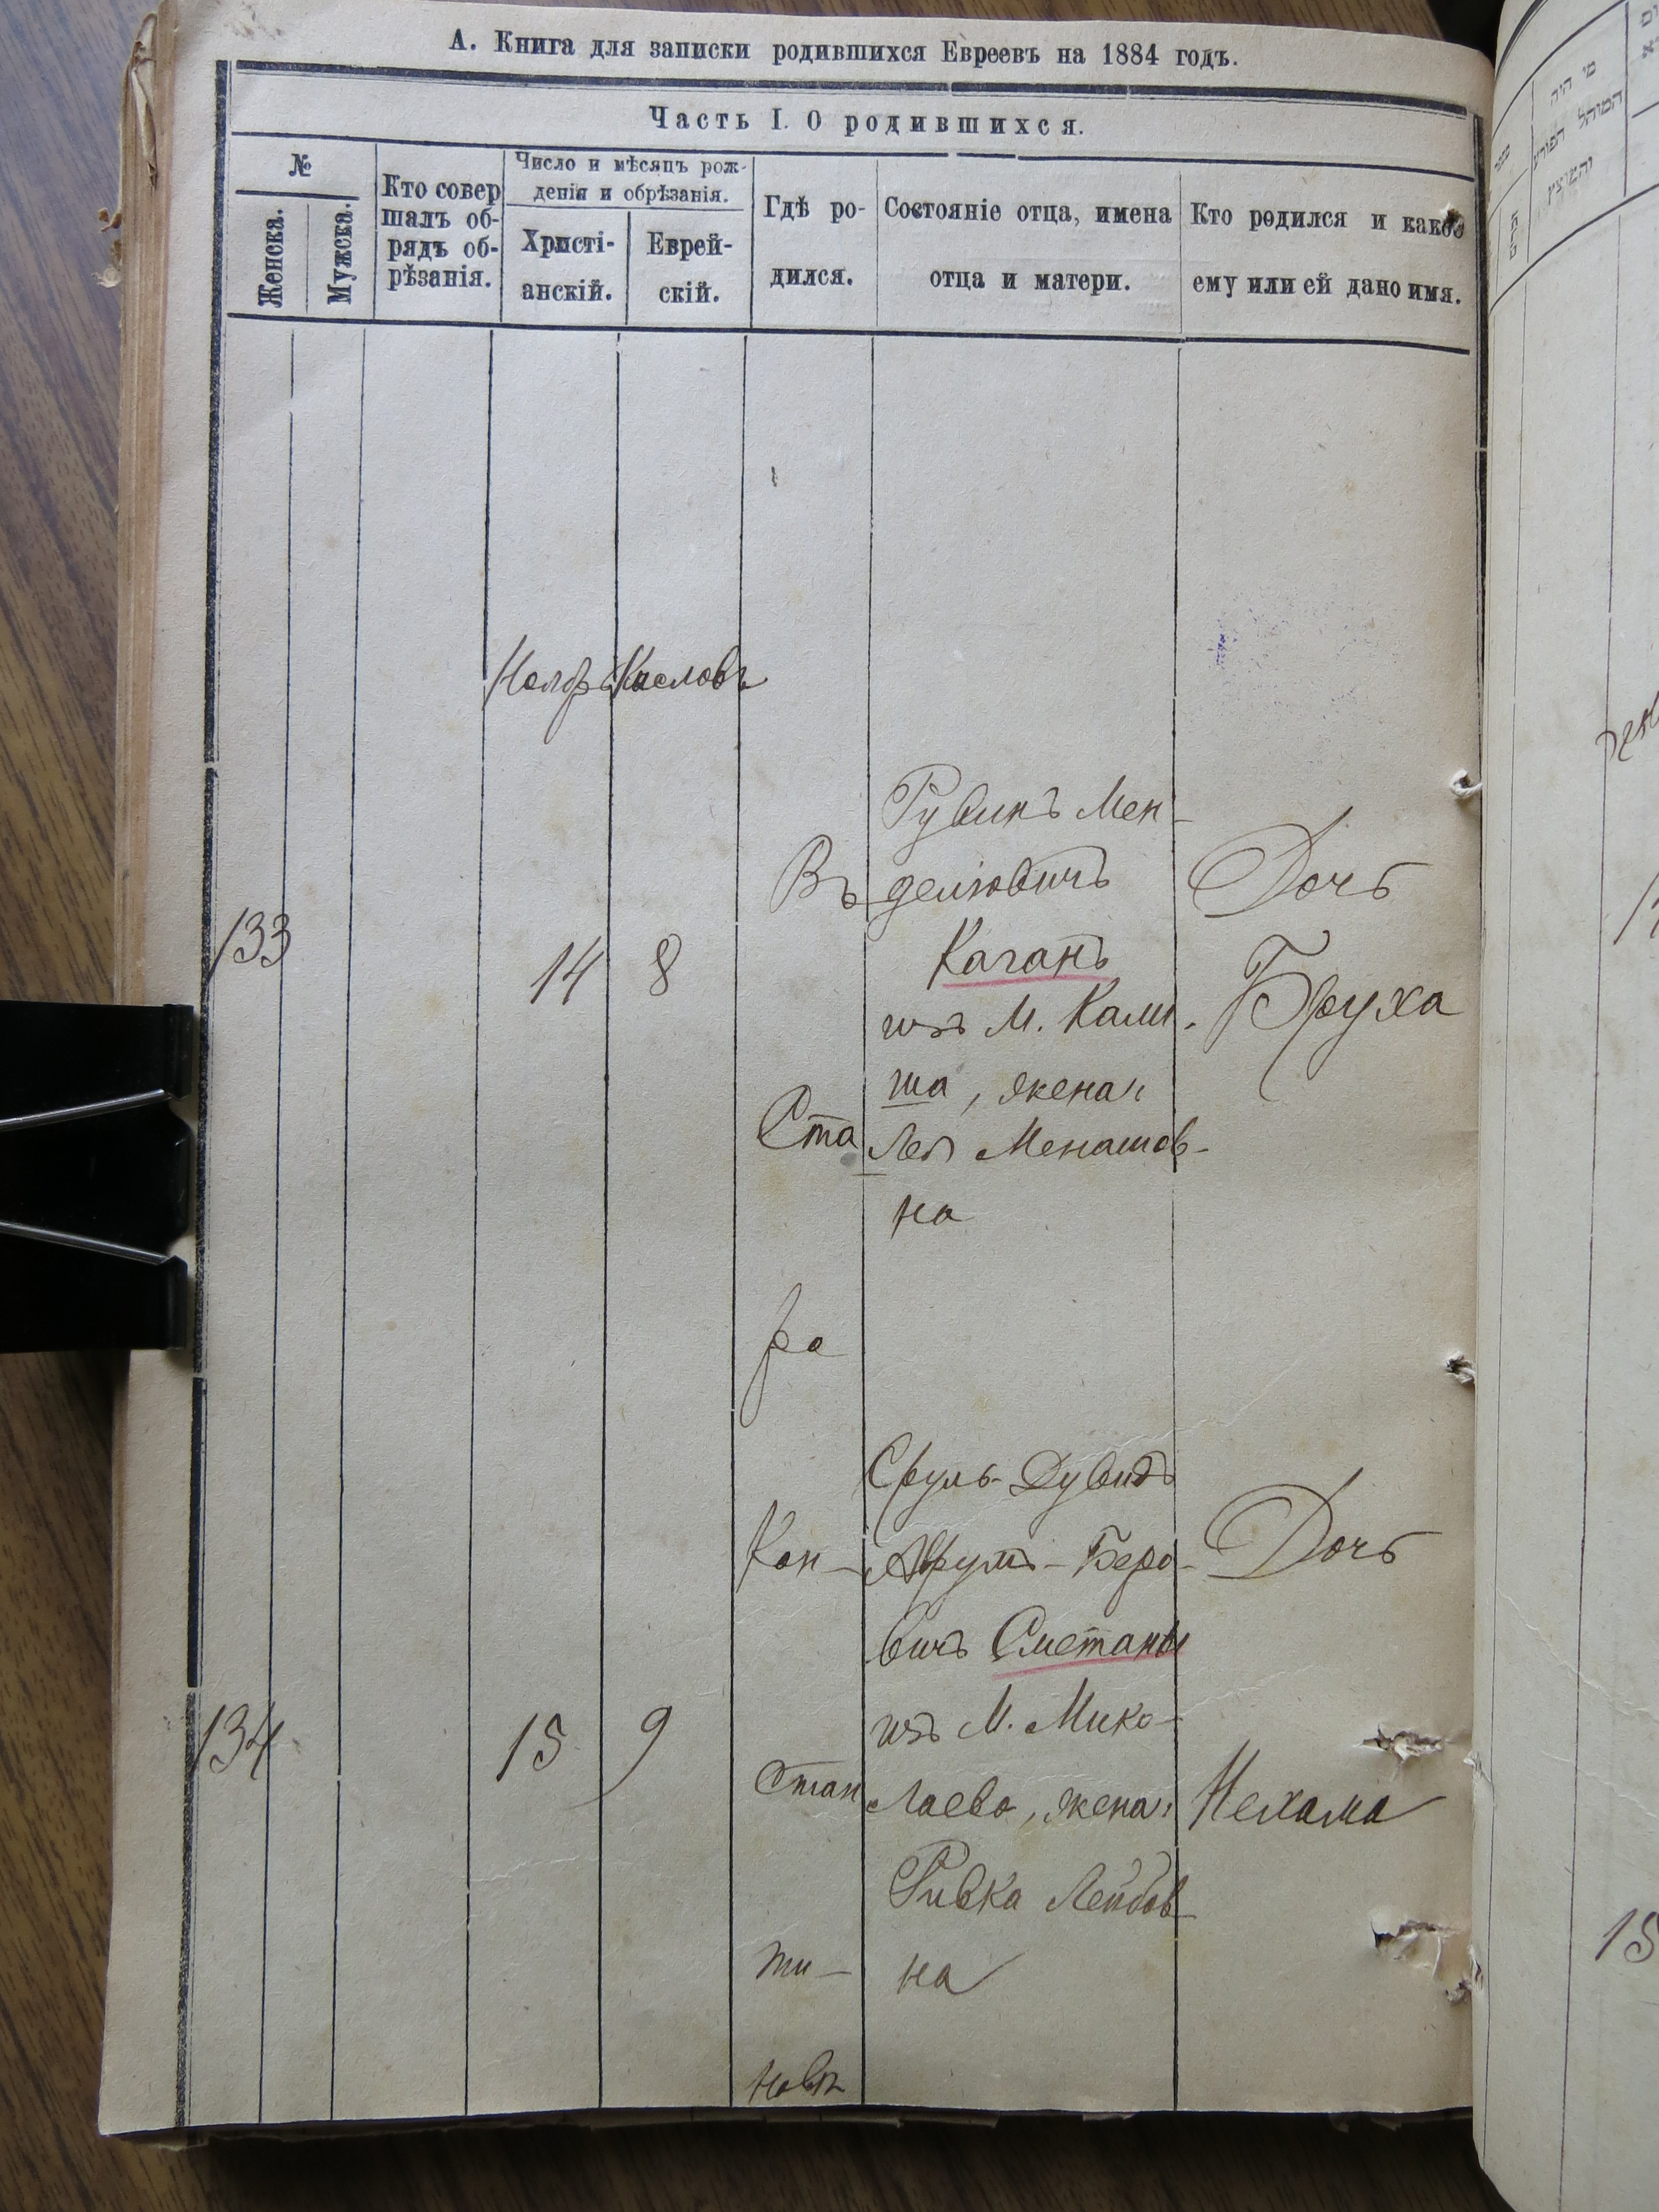 А. Книга для записки родившихся Евреевъ на 1884 годъ.
Часть I. О родившихся.
№
Женска.
Мужска.
Кто совер
шалъ об-
рядъ об-
рѣзанія.
Число и мѣсяцъ рож-
денія и обрѣзанія.
Христі-
анскій.
Еврей-
скій.
Гдѣ ро-
дился.
Состояніе отца, имена
отца и матери.
Кто родился и какое
ему или ей дано имя.
Ноябрь Кисловъ
133
14
8
Въ
Ста
ро
Кон-
стан
ти-
новѣ
Рувинъ Мен-
делювичъ
Каганъ
изъ М. Купи-
ша, жена:
Лея Менашов-
на
Дочь
Бруха
134
15
9
Сруль-Дувидъ
Аврумъ-Беро-
вичъ Сметаны
изъ М. Мико-
лаево, жена:
Ривка Лейбов-
на
Дочь
Нехама
מי היה
המוהל הפורע
והמוצץ
15